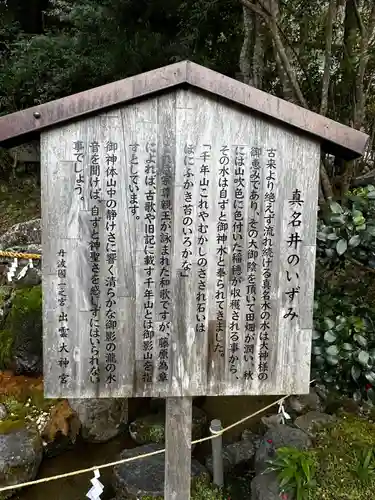 真名井のいずみ
古来より絶えず流れ続ける真名水の水は大神様の
御恵みであり、その大御陰を頂いて田畑が潤い、秋
には山吹色に色付いた稲穂が収穫される事から、
その水は自ずと御神水と奉られてきました。
「千年山これやむかしのさざれ石いは
ほにふかき苔のいろかな」
親王が詠まれた和歌ですが、藤原為章
によれば、古歌や旧記に載す千年山とは御影山を指
すとしています。
御神体山中の静けさに響く清らかな御影の瀧の水
音を聞けば、自ずと神聖さを感じずにはいられない
事でしょう。
丹波國一之宮 出雲大神宮